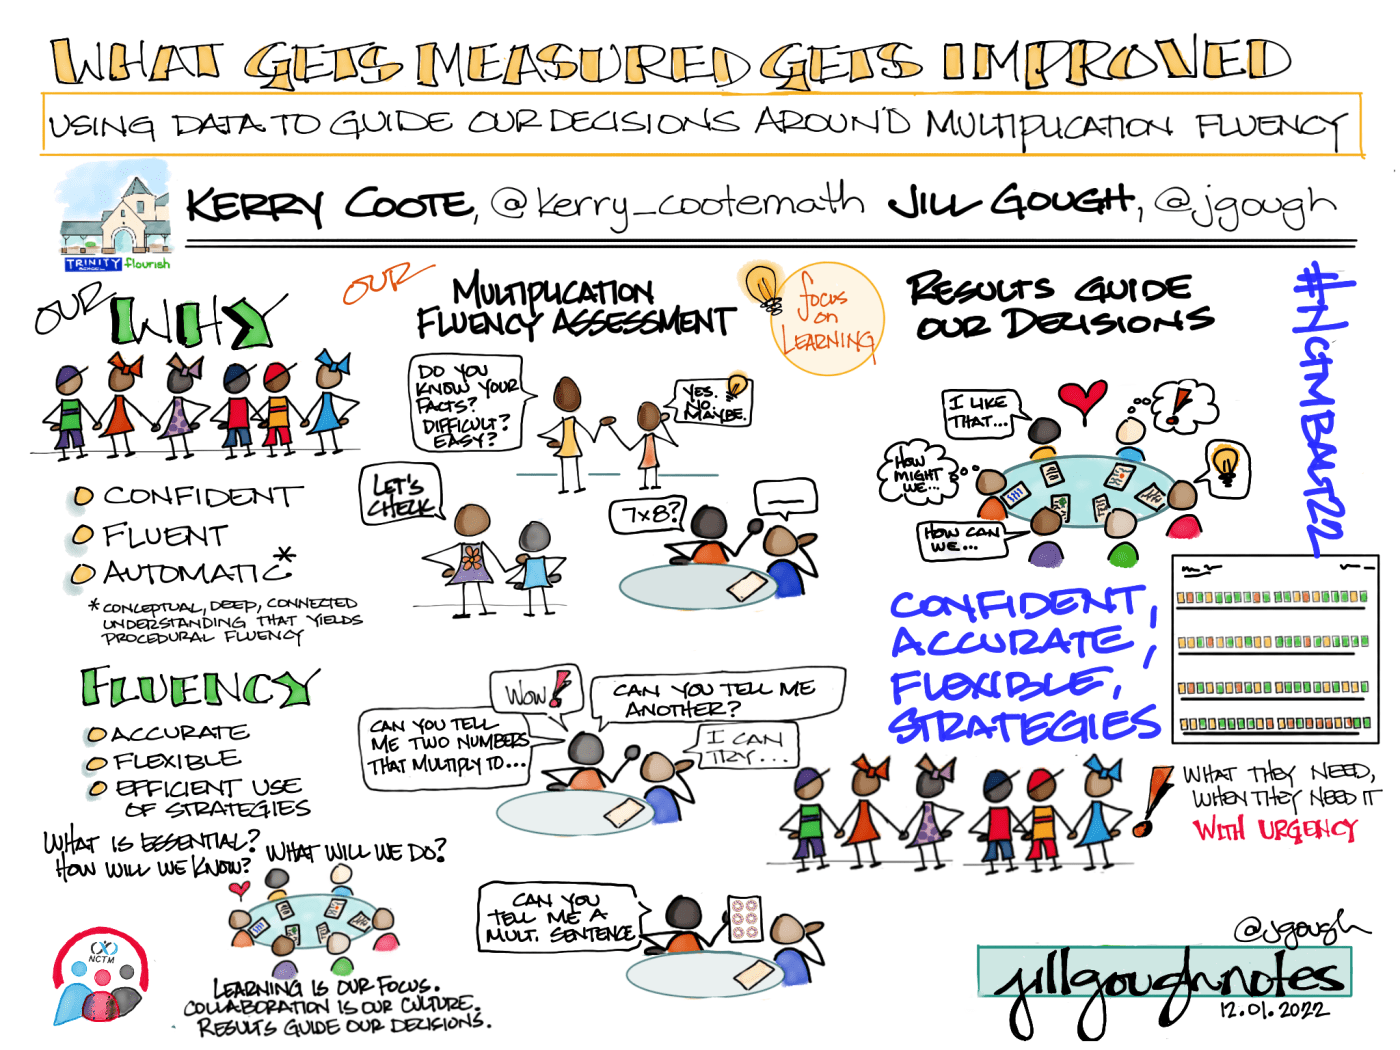 WHAT GETS MEASURED GETS IMPROVED
USING DATA TO GUIDE OUR DECISIONS AROUND MULTIPLICATION FLUENCY
KERRY COOTE, @kerry_cootemath JILL GOUGH, @jgough
TRINITY
SCHOOL
flourish
OUR WHY
CONFIDENT
FLUENT
AUTOMATIC*
*CONCEPTUAL, DEEP, CONNECTED
UNDERSTANDING THAT YIELDS
PROCEDURAL FLUENCY
FLUENCY
ACCURATE
FLEXIBLE
EFFICIENT USE
OF STRATEGIES
WHAT IS ESSENTIAL?
HOW WILL WE KNOW?
WHAT WILL WE DO?
LEARNING IS OUR FOCUS.
COLLABORATION IS OUR CULTURE.
RESULTS GUIDE OUR DECISIONS.
NCTM
OUR
MULTIPLICATION
FLUENCY ASSESSMENT
focus
on
LEARNING
DO YOU
KNOW YOUR
FACTS?
DIFFICULT?
EASY?
YES.
NO.
MAYBE.
LET'S
CHECK
7x8?
WOW!
CAN YOU TELL ME
ANOTHER?
CAN YOU TELL
ME TWO NUMBERS
THAT MULTIPLY TO...
I CAN
TRY...
CAN YOU
TELL ME A
MULT. SENTENCE
RESULTS GUIDE
OUR DECISIONS
I LIKE
THAT...
!
HOW
MIGHT
WE...
HOW CAN
WE...
CONFIDENT,
ACCURATE,
FLEXIBLE,
STRATEGIES
#NCTMBALT22
! WHAT THEY NEED,
WHEN THEY NEED IT
WITH URGENCY
@jgough
jillgoughnotes
12.01.2022